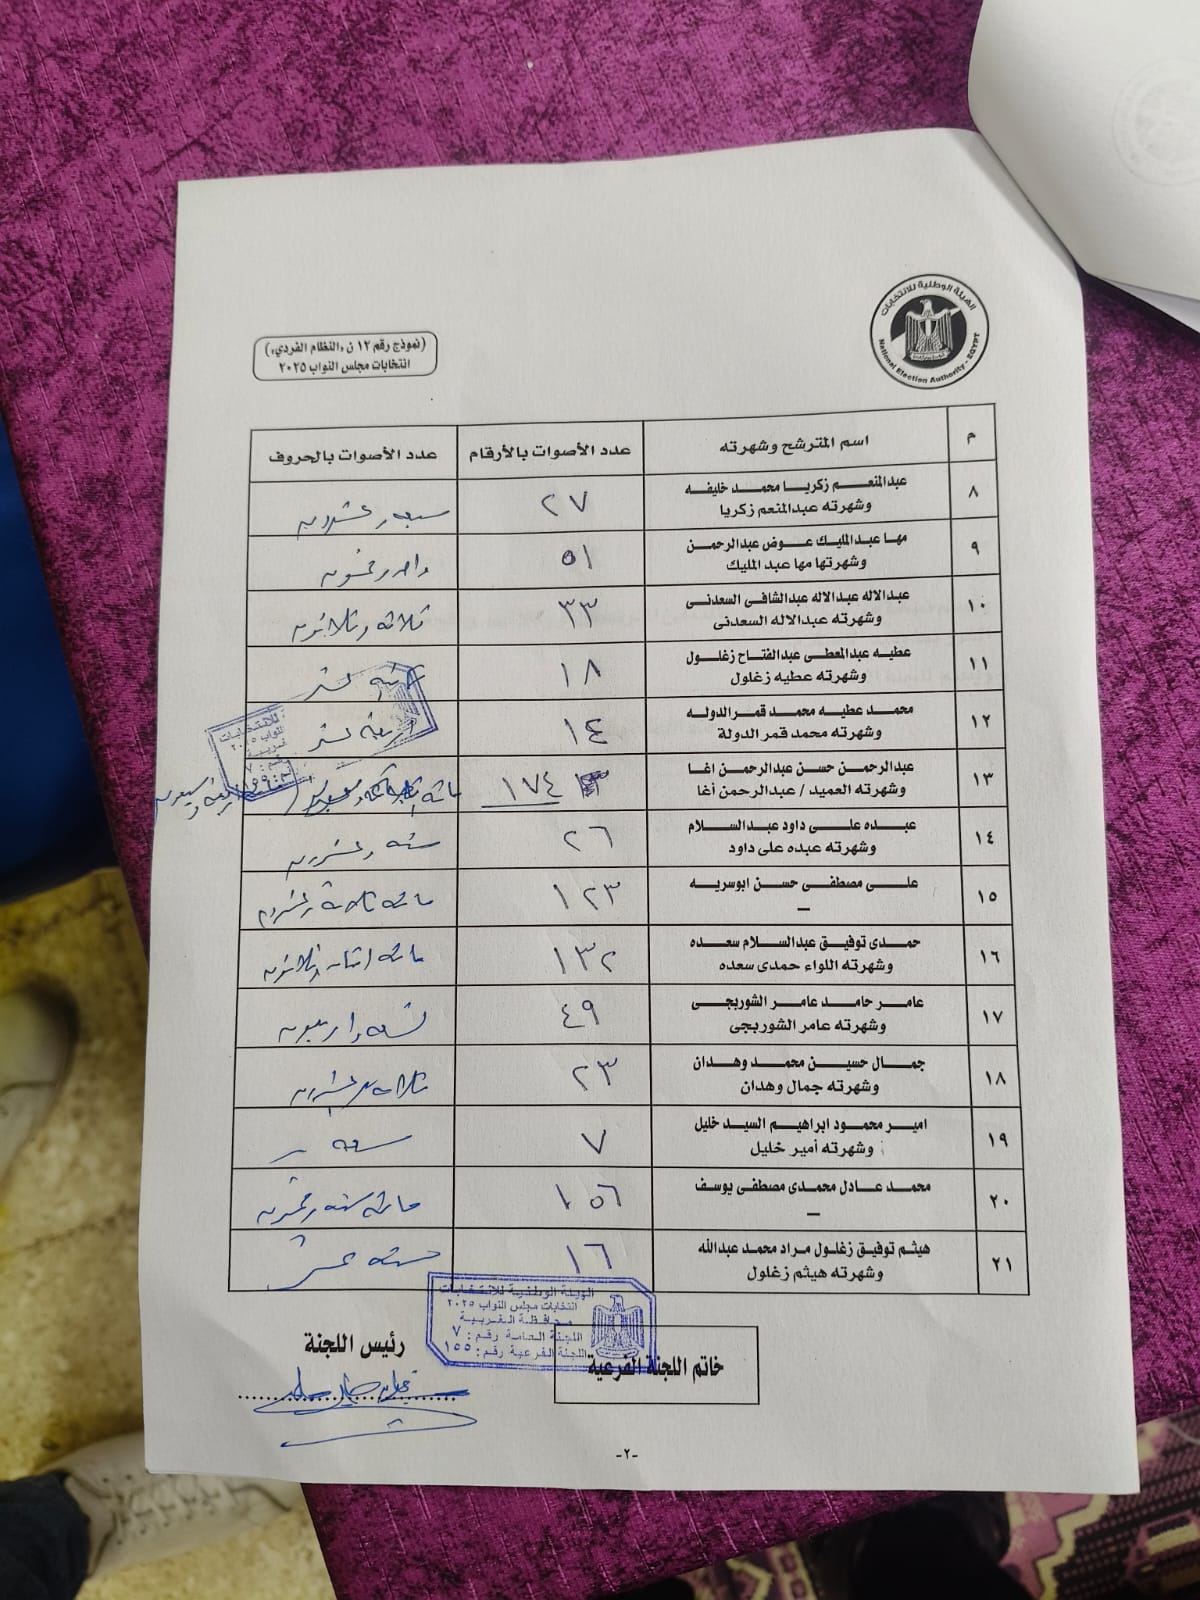 الهيئة الوطنية للانتخابات
National Election Authority - EGYPT
(نموذج رقم ١٢ ن «النظام الفردي»)
انتخابات مجلس النواب ٢٠٢٥
م اسم المترشح وشهرته عدد الأصوات بالأرقام عدد الأصوات بالحروف
٨ عبدالمنعم زكريا محمد خليفه ٢٧ سبعه وعشرون
وشهرته عبدالمنعم زكريا
٩ مها عبدالمليك عوض عبدالرحمن ٥١ واحد وخمسون
وشهرتها مها عبد المليك
١٠ عبدالاله عبدالاله عبدالشافى السعدنى ٣٣ ثلاثه وثلاثون
وشهرته عبدالاله السعدنى
١١ عطيه عبدالمعطى عبدالفتاح زغلول ١٨ عشر
وشهرته عطيه زغلول
١٢ محمد عطيه محمد قمرالدوله ١٤ اربعه عشر
وشهرته محمد قمر الدولة
١٣ عبدالرحمن حسن عبدالرحمن اغا ١٧٤ مائه اربعه وسبعون
وشهرته العميد / عبدالرحمن أغا
١٤ عبده على داود عبدالسلام ٢٦ سته وعشرون
وشهرته عبده على داود
١٥ على مصطفى حسن ابوسريه ١٢٣ مائه ثلاثة وعشرون
–
١٦ حمدى توفيق عبدالسلام سعده ١٣٢ مائه اثنان وثلاثون
وشهرته اللواء حمدى سعده
١٧ عامر حامد عامر الشوربجى ٤٩ تسعه واربعون
وشهرته عامر الشوربجى
١٨ جمال حسين محمد وهدان ٢٣ ثلاثه وعشرون
وشهرته جمال وهدان
١٩ امير محمود ابراهيم السيد خليل ٧ سبعه
وشهرته أمير خليل
٢٠ محمد عادل محمدى مصطفى يوسف ١٥٦ مائه سته وخمسون
–
٢١ هيثم توفيق زغلول مراد محمد عبدالله ١٦ سته عشر
وشهرته هيثم زغلول
الهيئة الوطنية للانتخابات
انتخابات مجلس النواب ٢٠٢٥
محافظة الغربية
اللجنة العامة رقم: ٧
اللجنة الفرعية رقم: ١٥٥
خاتم اللجنة الفرعية
رئيس اللجنة
-٢-